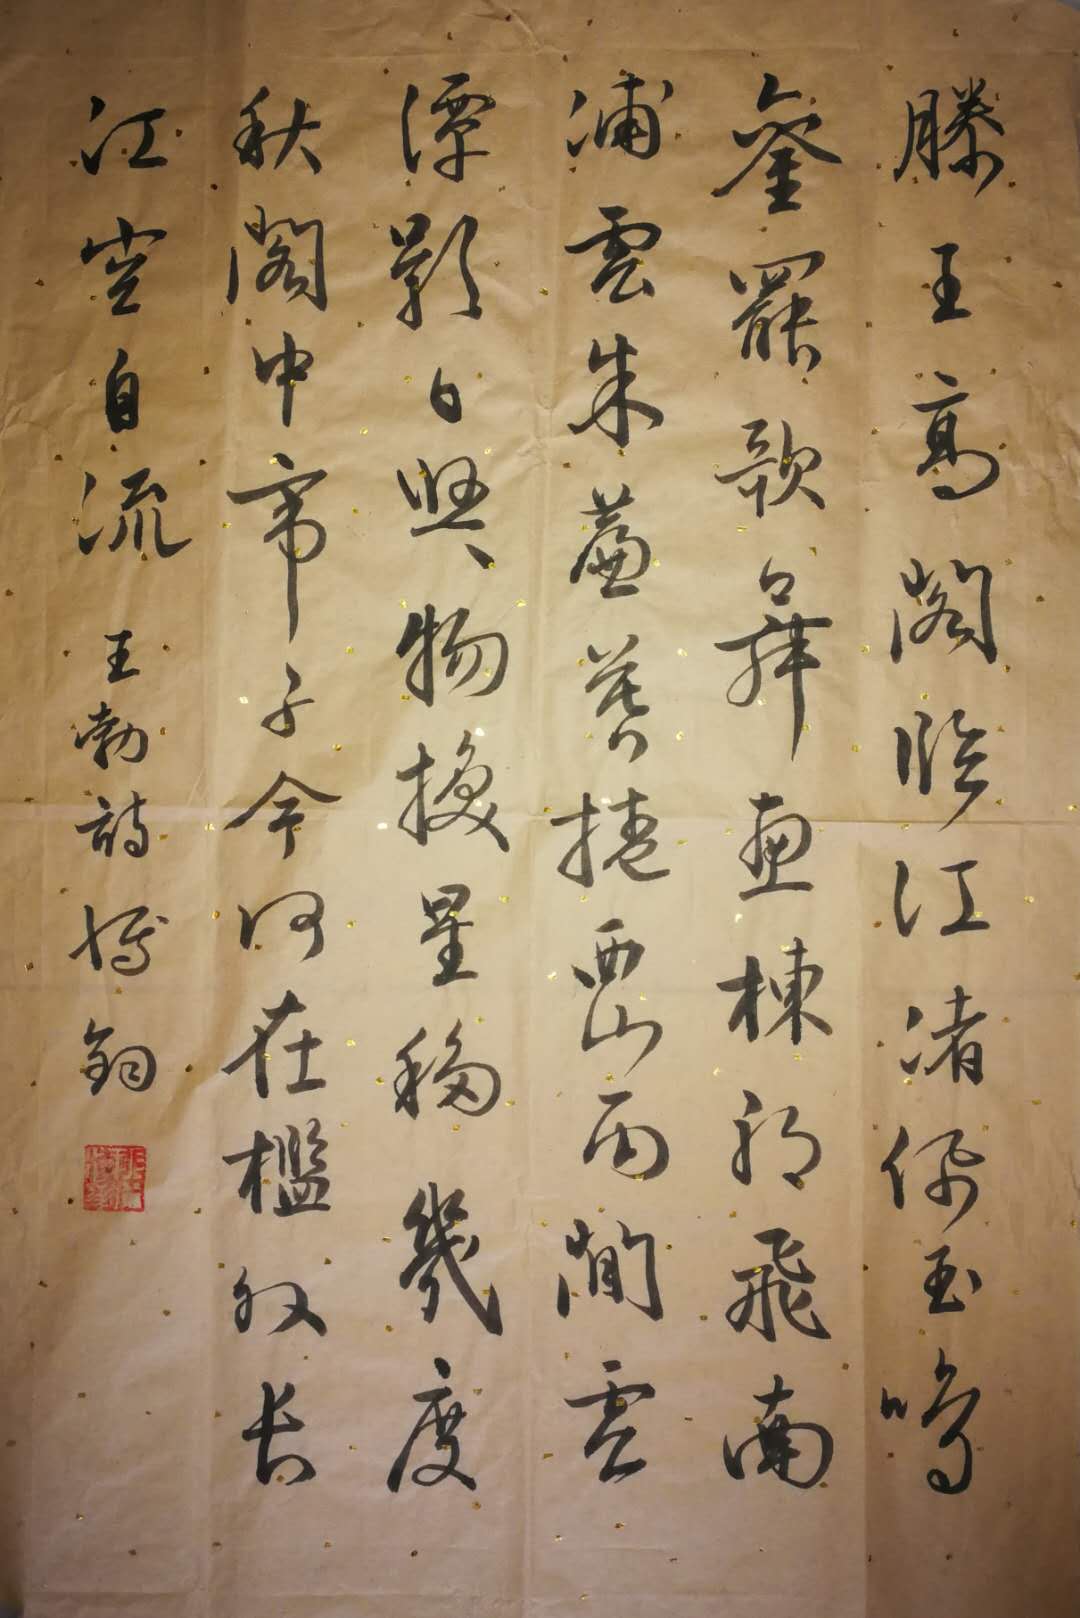 滕王高阁临江渚佩玉鸣
銮罢歌舞画栋朝飞南
浦雲朱蓾暮捲西山雨閒雲
潭影日與物换星移幾度
秋阁中帝子今何在檻外长
江空自流 王勃诗 博钧